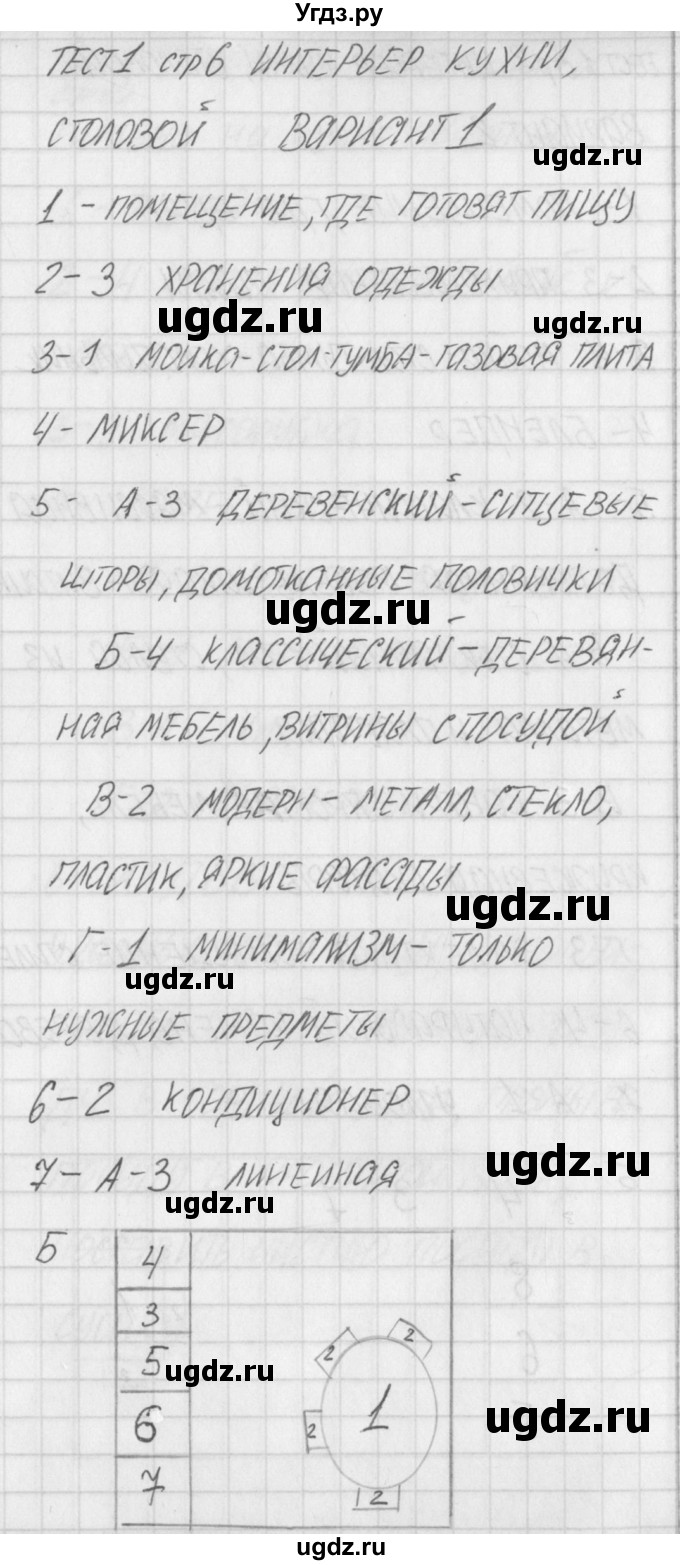 Угдз.ру
ТЕСТ1 стр6 ИНТЕРЬЕР КУХНИ,
СТОЛОВОЙ ВАРИАНТ1
ugdz.ru
1 - ПОМЕЩЕНИЕ, ГДЕ ГОТОВЯТ ПИЩУ
2-3 ХРАНЕНИЯ ОДЕЖДЫ
ugdz.ru
ugdz.ru
3-1 МОЙКА-СТОЛ-ТУМБА-ГАЗОВАЯ ПЛИТА
4- МИКСЕР
5- А-3 ДЕРЕВЕНСКИЙ-СИТЦЕВЫЕ
ШТОРЫ, ДОМОТКАННЫЕ ПОЛОВИЧКИ
ugdz.ru
Б-4 КЛАССИЧЕСКИЙ-ДЕРЕВЯН-
НАЯ МЕБЕЛЬ, ВИТРИНЫ С ПОСУДОЙ
В-2 МОДЕРН-МЕТАЛЛ, СТЕКЛО,
ПЛАСТИК, ЯРКИЕ ФАСАДЫ
ugdz.ru
Г-1 МИНИМАЛИЗМ-ТОЛЬКО
ugdz.ru
НУЖНЫЕ ПРЕДМЕТЫ
6-2 КОНДИЦИОНЕР
ugdz.ru
7-А-3 ЛИНЕЙНАЯ
ugdz.ru
Б
4
3
2 2
5
ugdz.ru
6
1
2
ugdz.ru
7
2
ugdz.ru